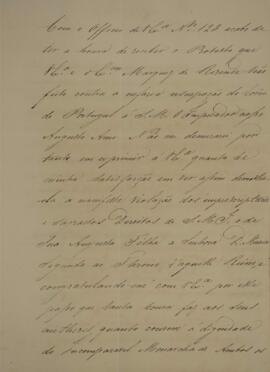 Com o Officio de V.Ex.ª N.º 128 acabo de
ter a honra de receber o Protesto que
V.Ex.ª e o Ex.mo Marquez de Rezende tem
feito contra a usurpação da Coroa
de Portugal a S.M. o Imperador nosso
Augusto Amo. Não me demorarei por
tanto em exprimir a V.Ex.ª quanto he
minha satisfação em ver assim
a manifesta violação dos imprescriptiveis
e sagrados Direitos de S.M.I. e de
Sua Augusta Filha a Senhora D. Maria
Segunda ao Throno d'aquelle Reino; e
congratulando-me com V.Ex.ª por
que tanta honra faz aos seus
authores, quanto convem a dignidade
do incomparavel Monarcha de Ambos os